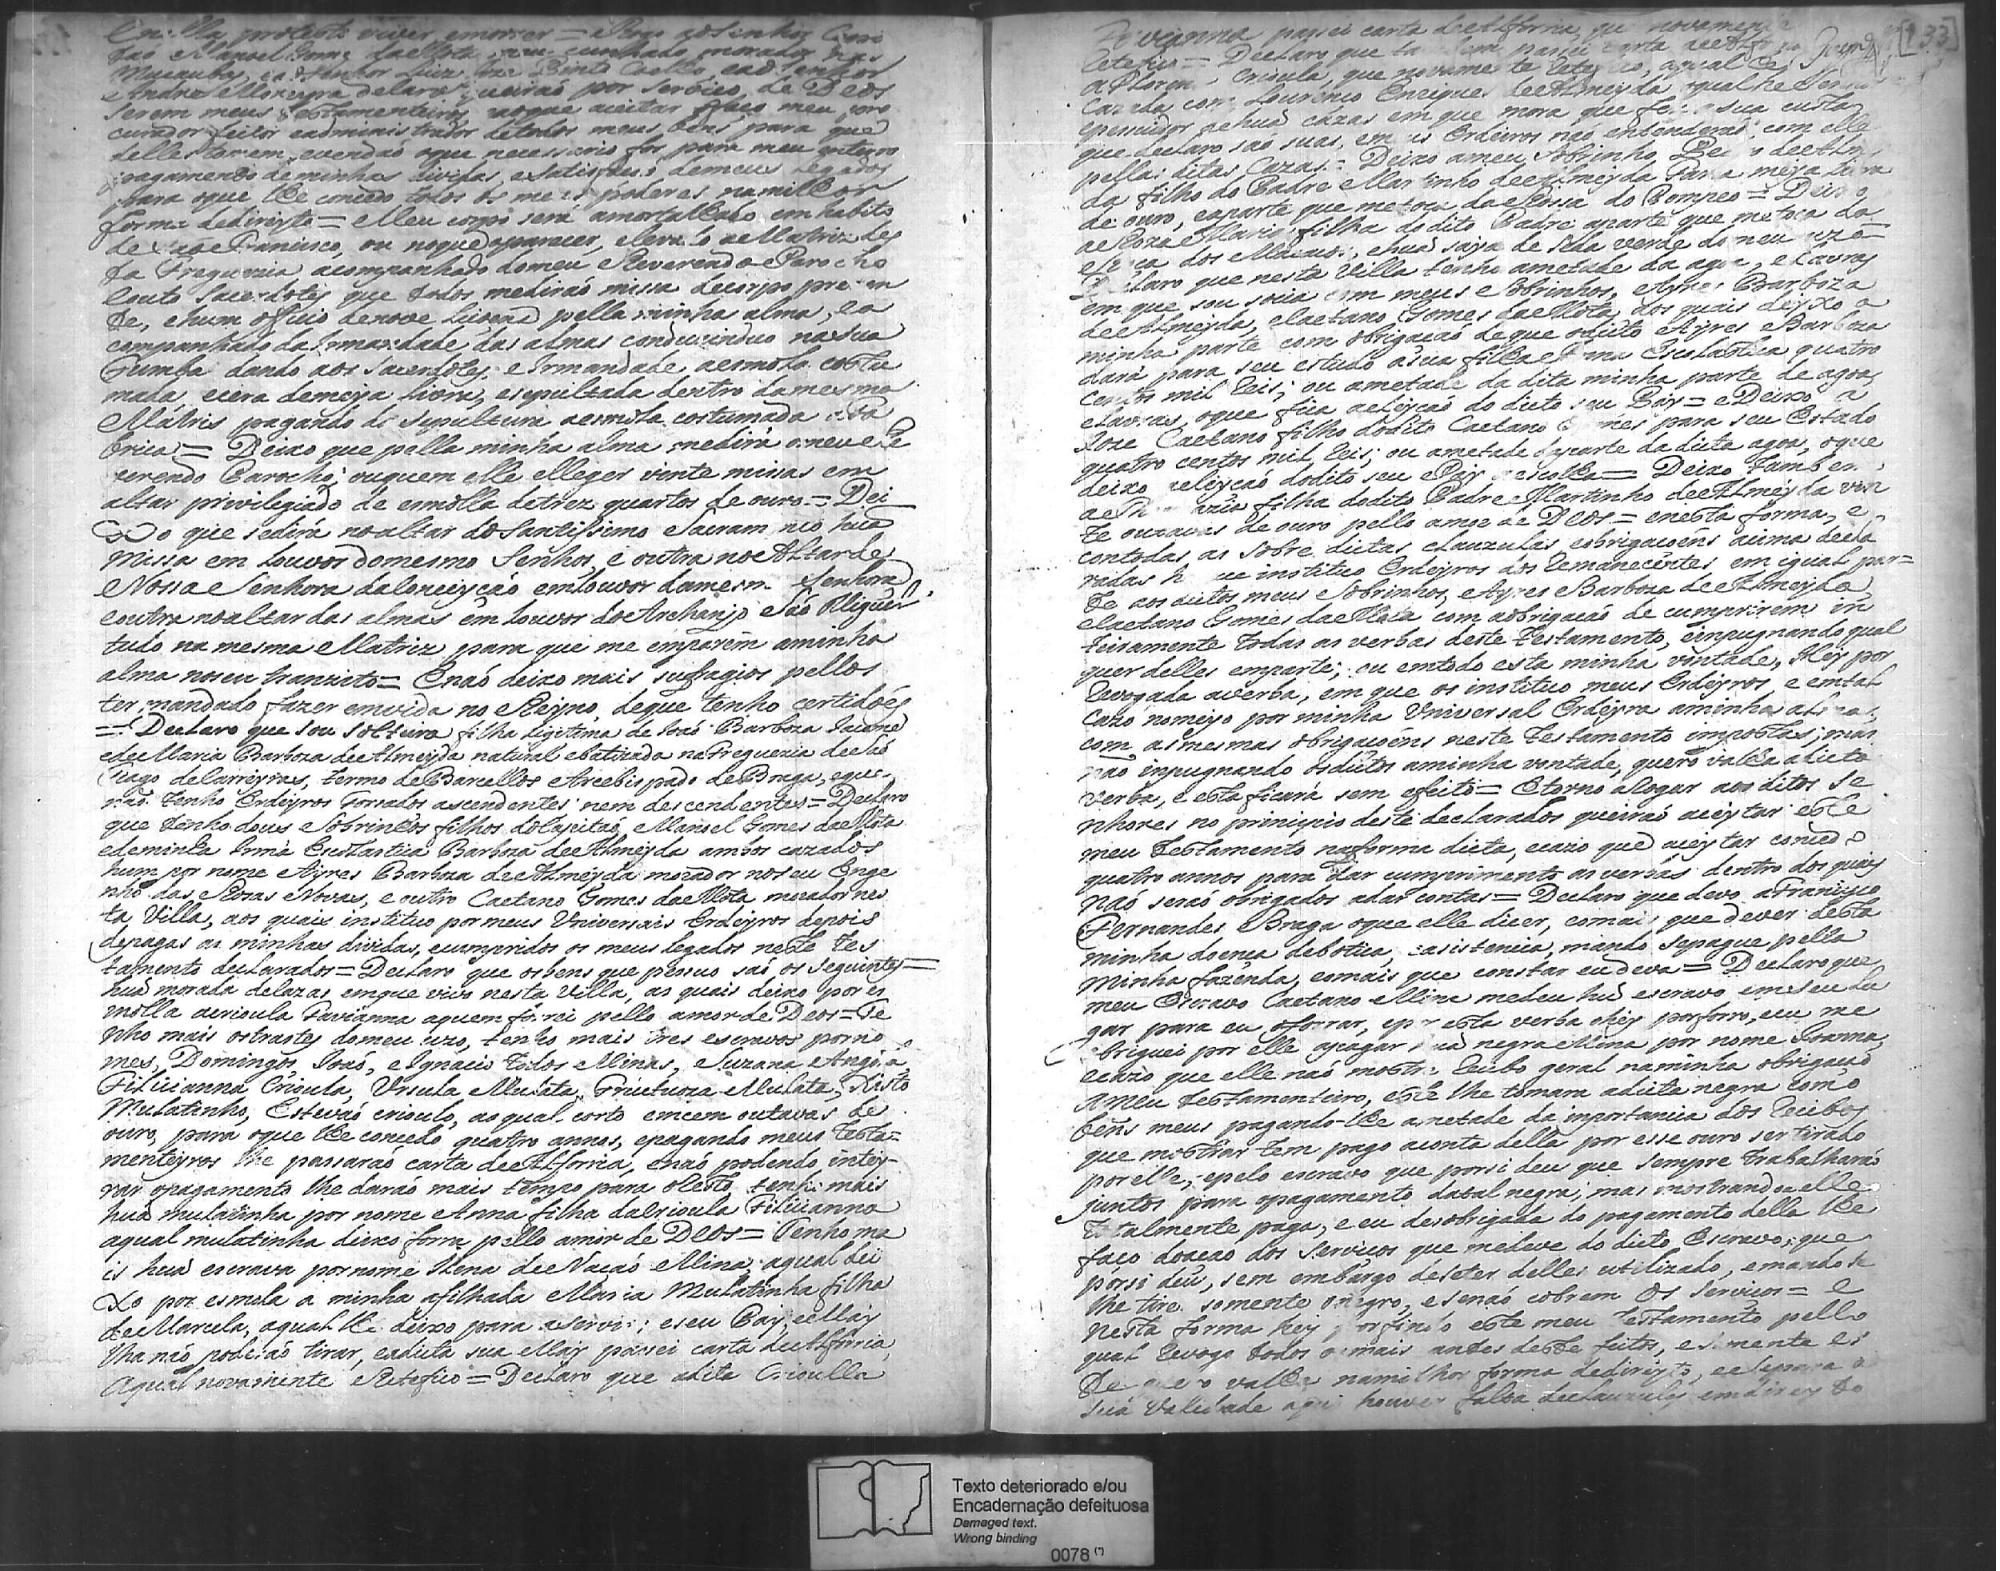 en ella protesto viver, emorrer = Rogo ao Senhor Capi
taõ Manoel Gomes daMota meu cunhado morador nas
Macaubas, eao Senhor Luiz Joze Pinto Coelho, eao Senhor
Andre Moreyra deCarv queiraõ por serviço, de Deos
serem meus testamenteiros, aoque aceitar faço meu pro
curador feitor eadministrador detodos meus beñs para que
delles tomem, evendaõ oque necessario for para meu enterro
pagamento deminhas dividas, esatisfaçaõ demeus legados
para oque lhe concedo todos os meus poderes namilhor
forma dedireyto = Meu corpo será amortalhado em habito
de Saõ Francisco, ou noque aparecer, elevado aMatriz des
ta Freguezia acompanhado domeu Reverendo Parocho
eouto Sacerdotes que todos medirão missa decorpo prezen
te, ehum officio denove Liçoens pella minha alma, ea
companhado dalrmandade das almas conduzindo na sua
Tumba dando aos Sacerdotes, e Irmandade aesmola costu
mada, ecera demeya livra, esepultada dentro damesma
Matris pagando de sepultura aesmola costumada afa
brica = Deixo que pella minha alma medirá omeu Re
verendo Parocho, ouquem elle elleger vinte missas em
altar privilegiado de esmolla detrez quartos de ouro = Dei
xo que sedirá noaltar doSantissimo Sacramento huã
missa em louvor domesmo Senhor, e outra no Altar de
Nossa Senhora daConceyçaõ emlouvor damesma Senhora
eoutra noaltar das almas em louvor do Archanjo Saõ Miguel
tudo na mesma Matriz para que me emparem aminha
alma noseu tranzito = Enaõ deixo mais sufragios pellos
ter mandado fazer emvida no Reyno, deque tenho certidoẽs
= Declaro que sou solteira filha Legitima de Joaõ Barboza Jacome
edeMaria Barboza deAlmeyda natural ebatizada naFreguezia deSaõ
Tiago deCarreyras, termo deBarcellos Arcebispado de Braga, eque
naõ tenho Erdeyros Forsados ascendentes nem descendentes = Declaro
que tenho dous Sobrinhos filhos doCapitaõ Manoel Gomes daMota
edeminha Irmã Escolastica Barboza deAlmeyda ambos cazados
hum por nome Ayres Barboza deAlmeyda morador noseu Enge
nho das Rosas Novas, e outro Caetano Gomes daMota morador nes
ta Villa, aos quais instituo por meus Universais Erdeyros depois
depagas as minhas dividas, ecumpridos os meus legados neste Tes
tamento declarados = Declaro que osbens que pessuo saõ os seguintes =
huã morada deCazas emque vivo nesta Villa, as quais deixo por es
molla acrioula Favianna aquem forrei pello amor de Deos = Te
nho mais ostrastes domeu uzo, tenho mais tres escravos por no
mes, Domingos, Joaõ, e Ignacio todos Minas, e Suzana Angola
Filicianna Crioula, Ursula Mulata, Fructuoza Mulata, Xisto
Mulatinho, Estevaõ crioulo, aoqual corto emcem outavas de
ouro, para oque lhe concedo quatro annos, epagando meus Testa=
menteyros lhe passaraõ carta deAlforria, enaõ podendo intey-
rar opagamento lhe daraõ mais tempo para oResto tenho mais
huã mulatinha por nome Anna filha daCrioula Filicianna
aqual mulatinha deixo forra pello amor de Deos = Tenho ma
is huã escrava por nome Elena deNaçaõ Mina, aqual dei
xo por esmola a minha afilhada Maria Mulatinha filha
deMarcela, aqual lhe deixo para aservir; eseu Pay, eMay
lha naõ poderaõ tirar, eadita sua May passei carta deAlforria,
aqual novamente Retefico = Declaro que adita Crioulla
[133]
Favianna passei carta deAlforria que novamente
Retefico = Declaro que tambem passei carta deAlforria
a Crioula, que novamente Retefico, aqual he
Cazada com Lourenço Enriques deAlmeyda oqual he Senhor
epessuidor dehuã cazas em que mora que fez a sua custa
que declaro saõ suas, emeus Erdeiros naõ entenderaõ com elle
pellas ditas Cazas = Deixo ameu Sobrinho deAlmey
da filho do Padre Martinho deAlmeyda Faria meya Livra
de ouro, eaparte que metoca daRossa do Pompeo = Deixo
aRoza Maria filha dodito Padre aparte que metoca da
dos Macacos, ehuã saya de seda verde do meu uzo =
Declaro que nesta Villa tenho ametade da agoa, eLavras
em que sou socia com meus Sobrinhos, Ayres Barboza
deAlmeyda, eCaetano Gomes daMota, aos quais deyxo a
minha parte com obrigaçaõ deque odito Ayres Barboza
dará para seu estudo asua filha Anna Escolastica quatro
centos mil Reis; ou ametade da dita minha parte de agoa,
elavras, oque fica aeleyçaõ do dicto seu Pay = eDeixo a
Joze Caetano filho dodito Caetano Gomes para seu Estado
quatro centos mil Reis; ou ametade daparte da dicta agoa, oque
deixo aeleyçaõ dodito seu Pay aescolha = Deixo tambem
a filha dodito Padre Martinho deAlmeyda vin
te outavas de ouro pello amor de Deos = enesta forma, e
comtodas as sobre dictas clauzulas eobrigaçoens acima decla
radas h que instituo Erdeyros dos Remanecentes em igual par=
te aos dictos meus Sobrinhos, Ayres Barboza deAlmeyda,
eCaetano Gomes daMota com aobrigaçaõ de cumprirem in
teiramente todas as verbas deste testamento, eimpugnando qual
quer delles emparte; ou emtodo esta minha vontade, Hey por
Revogada averba, em que os instituo meus Erdeyros, e emtal
cazo nomeyo por minha Universal Erdeyra aminha alma,
com asmesmas obrigaçoẽns neste testamento impostas; mas
naõ inpugnando osdictos aminha vontade, quero valha adicta
verba, e esta ficará sem efeito = Etorno aRogar aos ditos Se
nhores no principio deste declarados queiraõ aceytar este
meu testamento naforma dicta, ecazo que aceytar concedo
quatro annos para dar cumprimento as verbas dentro dos quais
naõ seraõ obrigados adar contas = Declaro que devo aFrancisco
Fernandes Braga oque elle dicer, eomais que dever desta
minha doença debotica, easistencia, mando sepague pella
minha fazenda, eomais que constar eu deva = Declaro que
meu Escravo Caetano Mina medeu hũ escravo emseu lu
gar para eu oforrar, epor esta verba ohey porforro, eeu me
obriguei por elle apagar huã negra Mina por nome Joanna,
ecazo que elle naõ mostre Recibo geral naminha obrigaçaõ
ameu testamenteiro, este lhe tomara adicta negra como
beñs meus pagando-lhe ametade da importancia dos Recibos
que mostrar tem pago aconta della por esse ouro ser tirado
porelle, epelo escravo que porsi deu que sempre trabalharaõ
juntos para opagamento datal negra; mas mostrandoa elle
totalmente paga, e eu desobrigada do pagamento della lhe
faço doaçaõ dos Serviços que medeve do dicto Escravo, que
porsi deu, sem embargo deseter delles utilizado, emandose
lhe tire somente onegro, esenaõ cobrem os serviços = e
nesta forma hey porfindo este meu testamento pello
qual Revogo todos os mais antes deste feitos, esomente es
te quero valha namilhor forma dedireyto, esepara a
sua validade aqui houver falta declauzulas emdireyto
Texto deteriorado e/ou
Encadernação defeituosa
Damaged text.
Wrong binding
0078 (*)